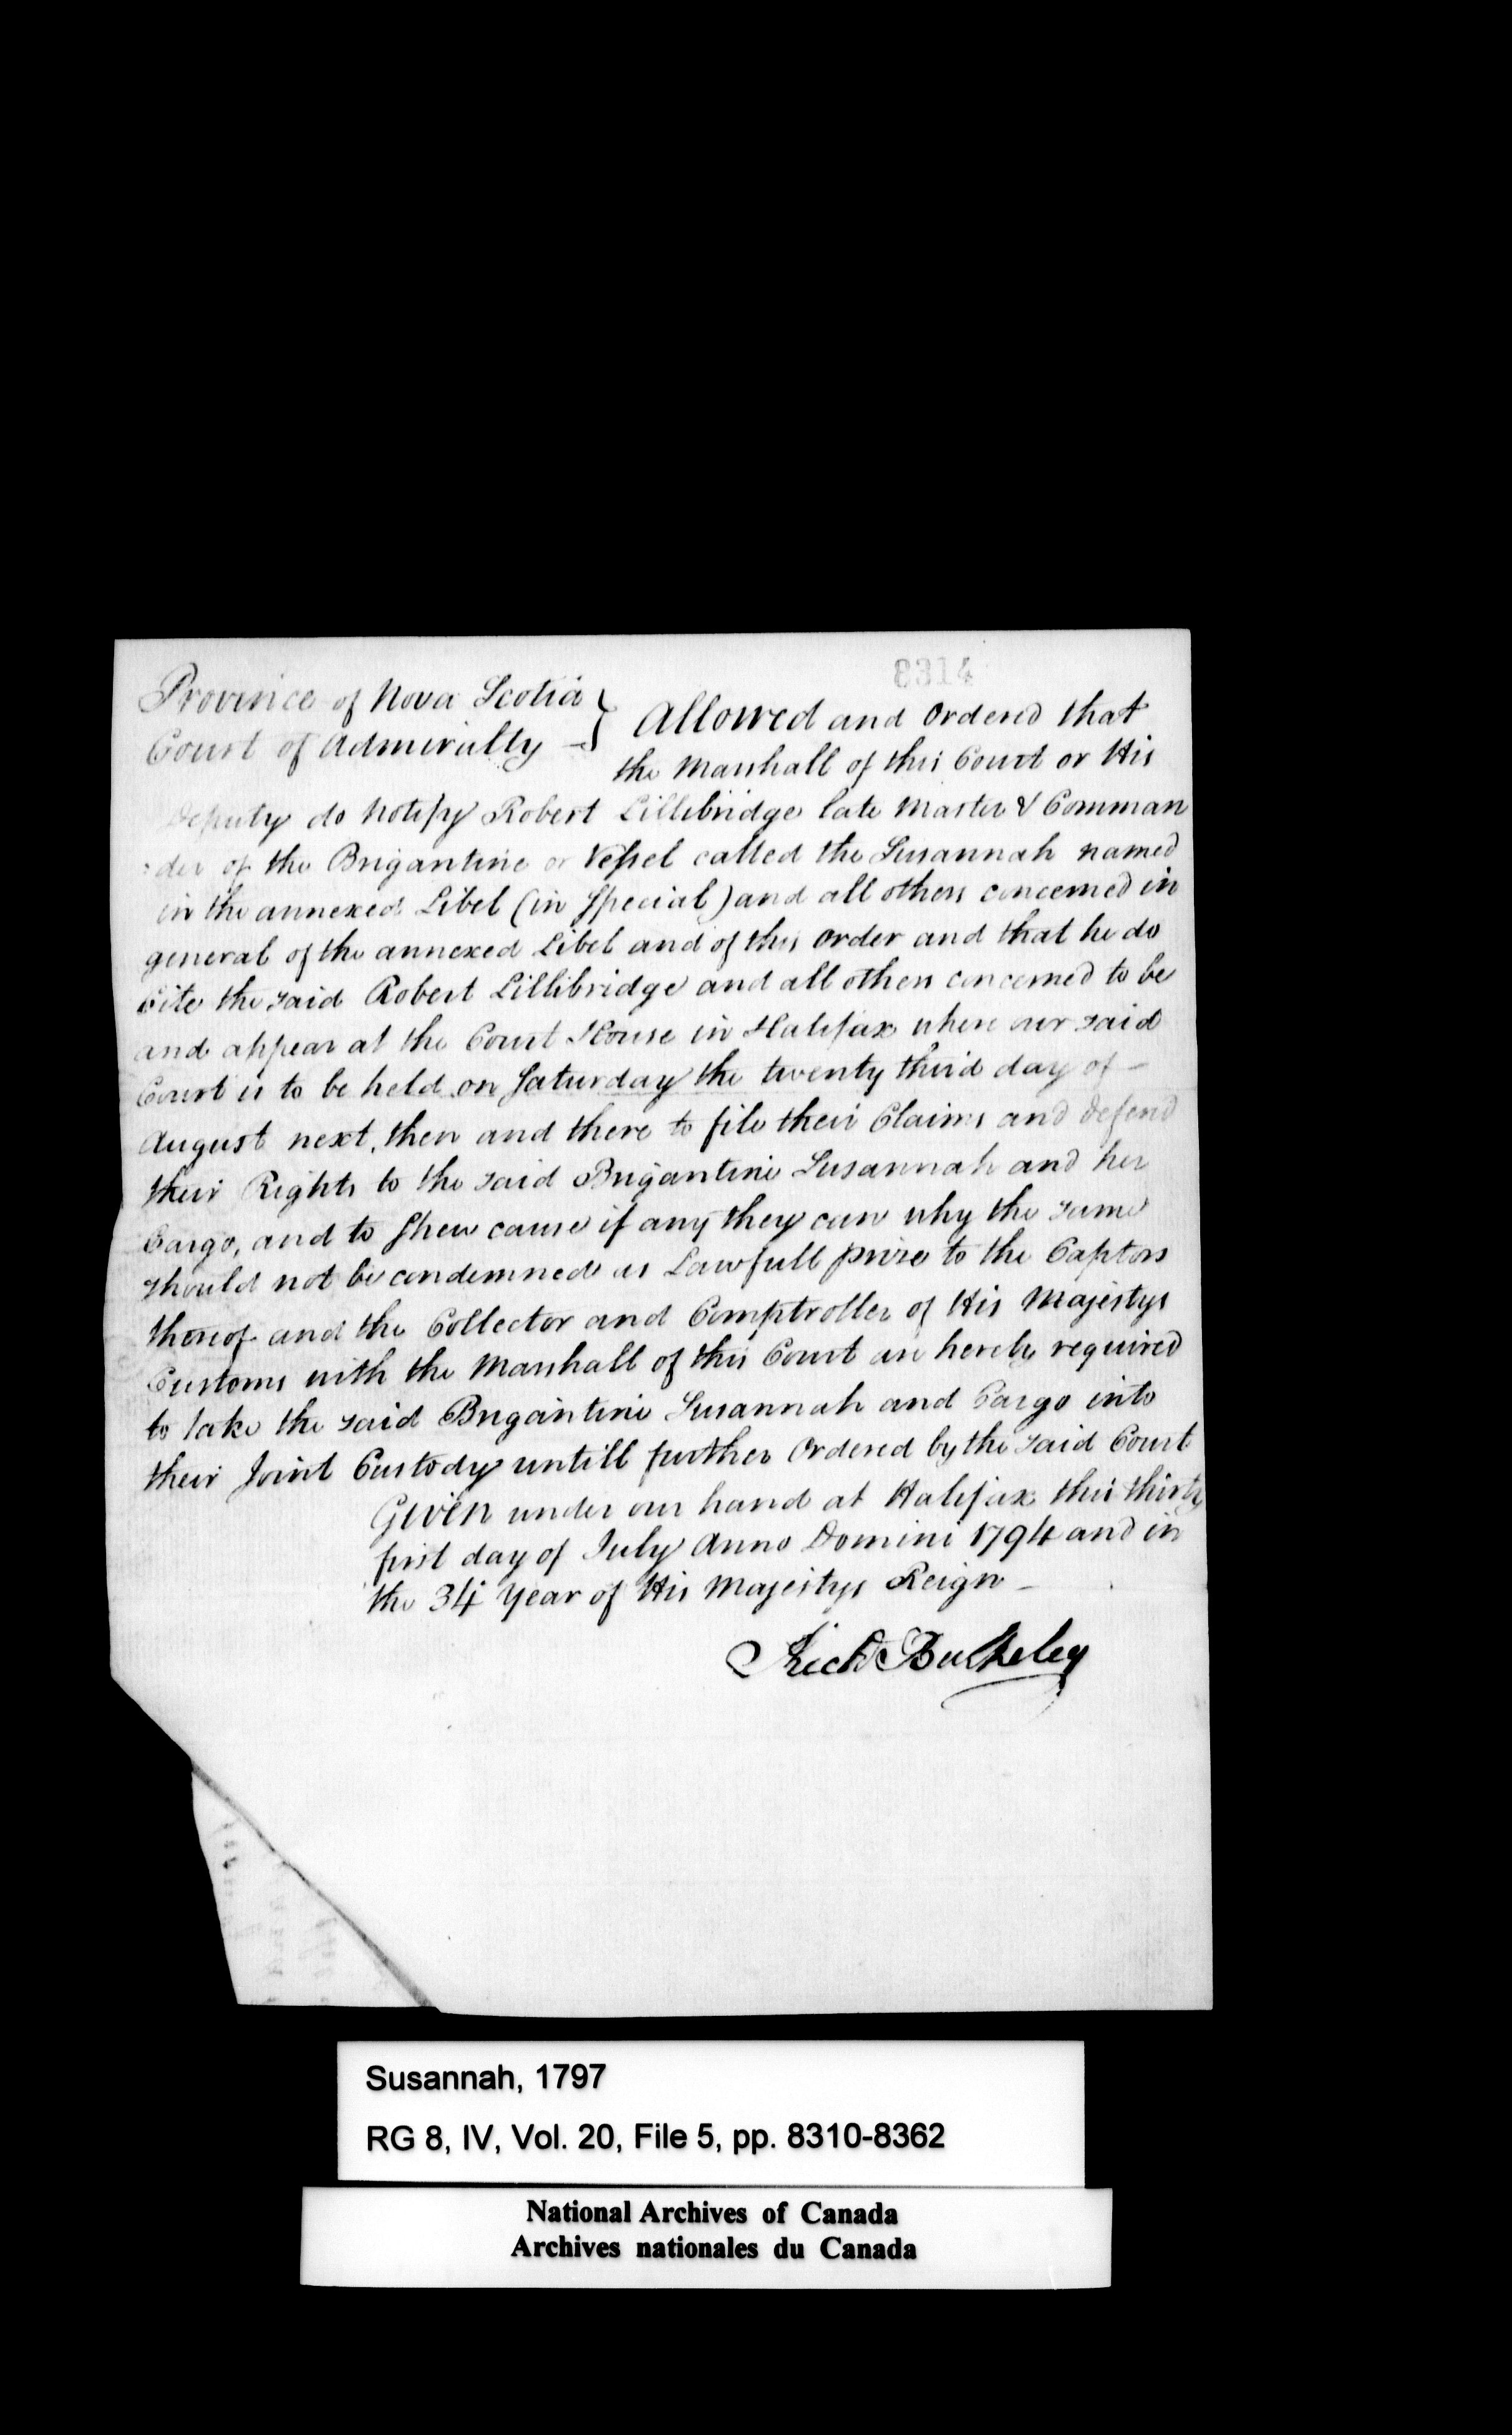 8314
Province of Nova Scotia
Court of Admiralty -}
Allowed and Ordered that
the Marshall of this Court or His
Deputy do Notify Robert Lillibridge late Master & Comman
:der of the Brigantine or Vessel called the Susannah named
in the annexed Libel (in Special) and all others concerned in
general of the annexed Libel and of this Order and that he do
Cite the said Robert Lillibridge and all others concerned to be
and appear at the Court House in Halifax where our said
Court is to be held on Saturday the twenty third day of -
August next, then and there to file their Claims and defend
their Rights to the said Brigantine Susannah and her
Cargo, and to Shew cause if any they can why the same
should not be condemned as Lawfull prize to the Captors
thereof and the Collector and Comptroller of His Majestys
Customs with the Marshall of this Court are hereby required
to take the said Brigantine Susannah and Cargo into
their Joint Custody untill further Ordered by the said Court
Given under our hand at Halifax this thirty
first day of July Anno Domini 1794 and in
the 34 Year of His Majestys Reign -
Richd Bulkeley
Susannah, 1797
RG 8, IV, Vol. 20, File 5, pp. 8310-8362
National Archives of Canada
Archives nationales du Canada